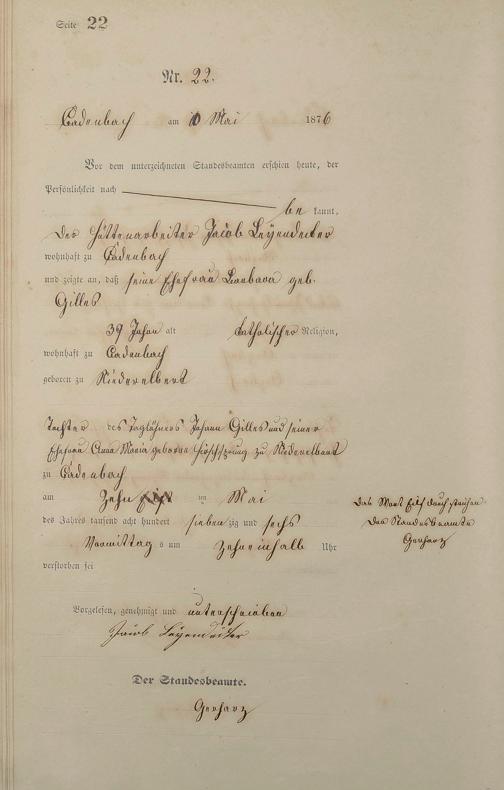 Seite 22
Nr. 22.
Cadenbach am 10 Mai 1876
Vor dem unterzeichneten Standesbeamten erschien heute, der
Persönlichkeit nach
be kannt,
der Hüttenarbeiter Jacob Leÿendecker
wohnhaft zu Cadenbach
und zeigte an, daß seine Ehefrau Barbara geb.
Gilles
39 Jahre alt katholischer Religion,
wohnhaft zu Cadenbach
geboren zu Niederelbert
Tochter des Taglöhners Johann Gilles und seiner
Ehefrau Anna Maria geborene zu Niederelbert
zu Cadenbach
am Zehn ten Mai
des Jahres tausend acht hundert sieben zig und sechs
Vormittag s um Zehneinhalb Uhr
verstorben sei
Das Wort durchstrichen
Der Standesbeamte
Gerharz
Vorgelesen, genehmigt und unterschrieben
Jacob Leyendecker
Der Standesbeamte.
Gerharz